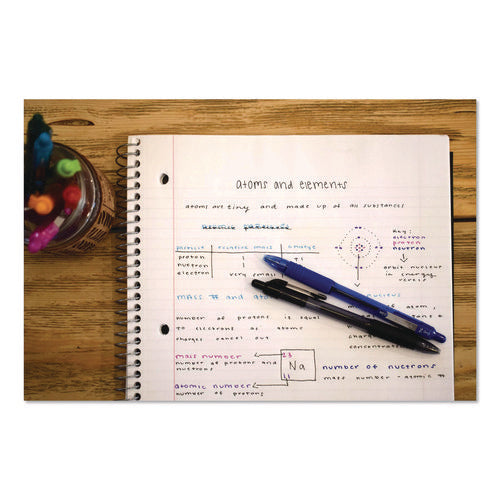 atoms and elements
atoms are tiny and made up of all substances
particle relative mass charge
proton 1 +1
nuetron 1
electron very small
Key:
electron
proton
neutron
orbit nucleus
in energy
levels
mass # and atomic
nucleus
number of protons is equal
to electrons as atomic
charges cancel out
atom,
mass number
number of protons and
nuetrons
23
Na
11
number of nuetrons
mass number - atomic #
atomic number
number of protons